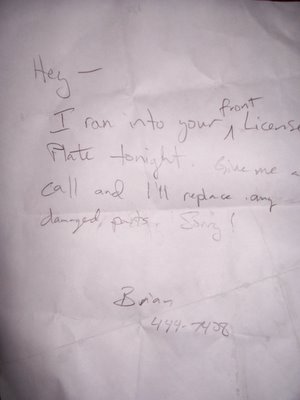 Hey —
I ran into your front License
Plate tonight. Give me a
call and I'll replace any
damaged parts. Sorry!
Brian
444-7428